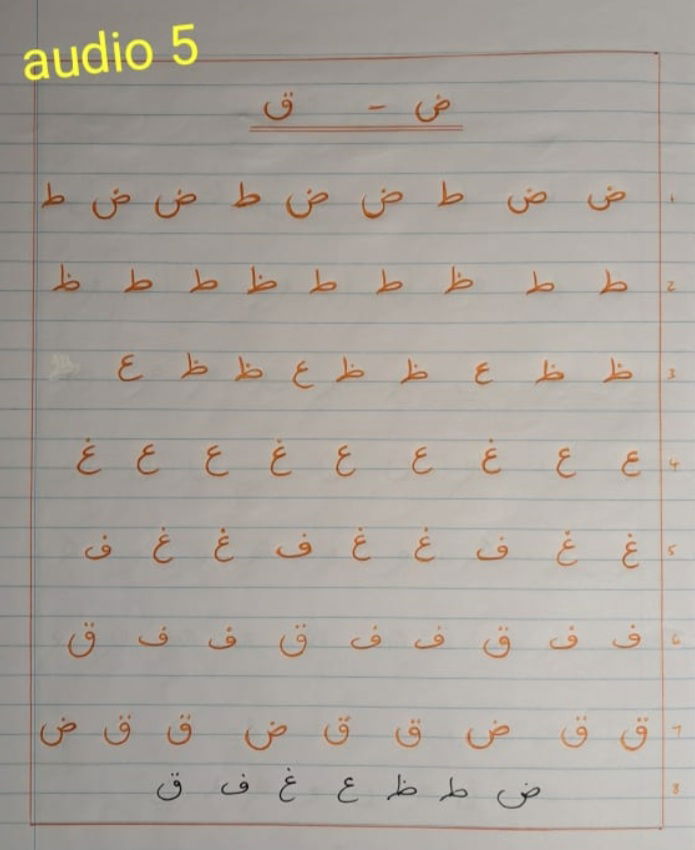 audio 5
ض - ق
1 ض ض ط ض ض ط ض ض ط
2 ط ط ظ ط ط ظ ط ط ظ
3 ظ ظ ع ظ ظ ع ظ ظ ع
4 ع ع غ ع ع غ ع ع غ
5 غ غ ف غ غ ف غ غ ف
6 ف ف ق ف ف ق ف ف ق
7 ق ق ض ق ق ض ق ق ض
8 ض ط ظ ع غ ف ق